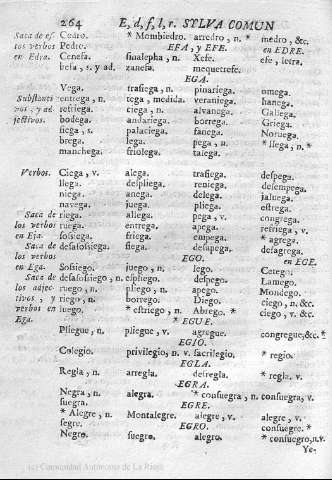 264 E, d, f, l, r. SYLVA COMUN
Saca de es Cedro. * Mombiedro. arredro, n. * medro, &c.
tos verbos Pedre. EFA, y EFE. en EDRE.
en Edra. Cenefa. sinalepha, n. Xefe. efe, letra.
befa, s. y ad. zanefa. mequetrefe.
EGA.
Vega. trafiega, n. pinariega. omega.
Substanti entrega, n. tega, medida. veraniega. hanega.
vos, y ad- refriega. ciega, n. alvanega. Gallega.
jectivos. bodega. andariega. borrega. Griega.
siega, s. palaciega. fanega. Noruega.
brega. lega. pega, n. * llega, n. *
manchega. friolega. talega.
Verbos. Ciega, v. alega. trasiega. despega.
llega. despliega. reniega. desempega.
niega. anega. delega. jaluega.
navega. juega. pliega. estrega.
Saca de riega. allega. pega, v. congrega.
los verbos ruega. entrega. apega. refriega, v.
en Eja. sosiega. friega. empega. * agrega.
Saca de desasosiega. siega. desapega. desagrega.
los verbos EGO. en EGE.
en Ega. Sosiego. juego, n. lego. Cetego.
Saca de desasosiego, n. espliego. despego. Lamego.
los adjec- ruego, n. pliego, n. apego. Mondego.
tivos, y riego, n. borrego. Diego. ciego, n. &c.
verbos en luego. * estriego, n. Abrego. * ciego, v. &c.
Ega. * EGUE.
Pliegue, n. pliegue, v. agregue. congregue,&c. *
EGIO.
Colegio. privilegio, n. v. sacrilegio. * regio.
EGLA.
Regla, n. arregla. desregla. * regla, v.
EGRA.
Negra, n. alegra. * consuegra, n. consuegra, v.
suegra. EGRE.
* Alegre, n. Montalegre. alegre, v. alegre, v.
segre. EGRO. consuegre. *
Negro. suegro. alegro. * consuegro,n.v.
Ye-
(c) Comunidad Autónoma de La Rioja